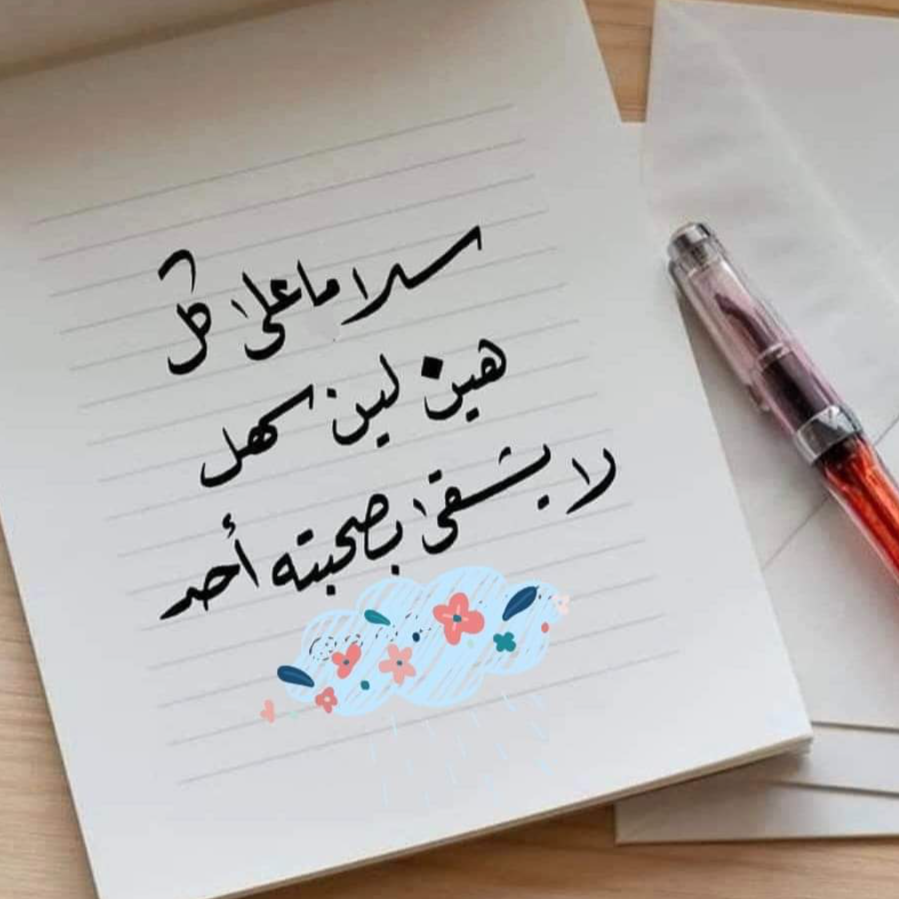 سلاما على كل
هين لين سهل
لا يشقى بصحبته أحد